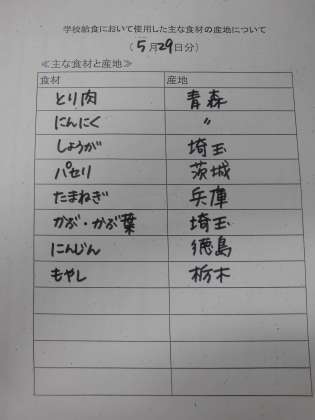 学校給食において使用した主な食材の産地について
(5月29日分)
≪主な食材と産地≫
食材 産地
とり肉 青森
にんにく 〃
しょうが 埼玉
パセリ 茨城
たまねぎ 兵庫
かぶ・かぶ葉 埼玉
にんじん 徳島
もやし 栃木